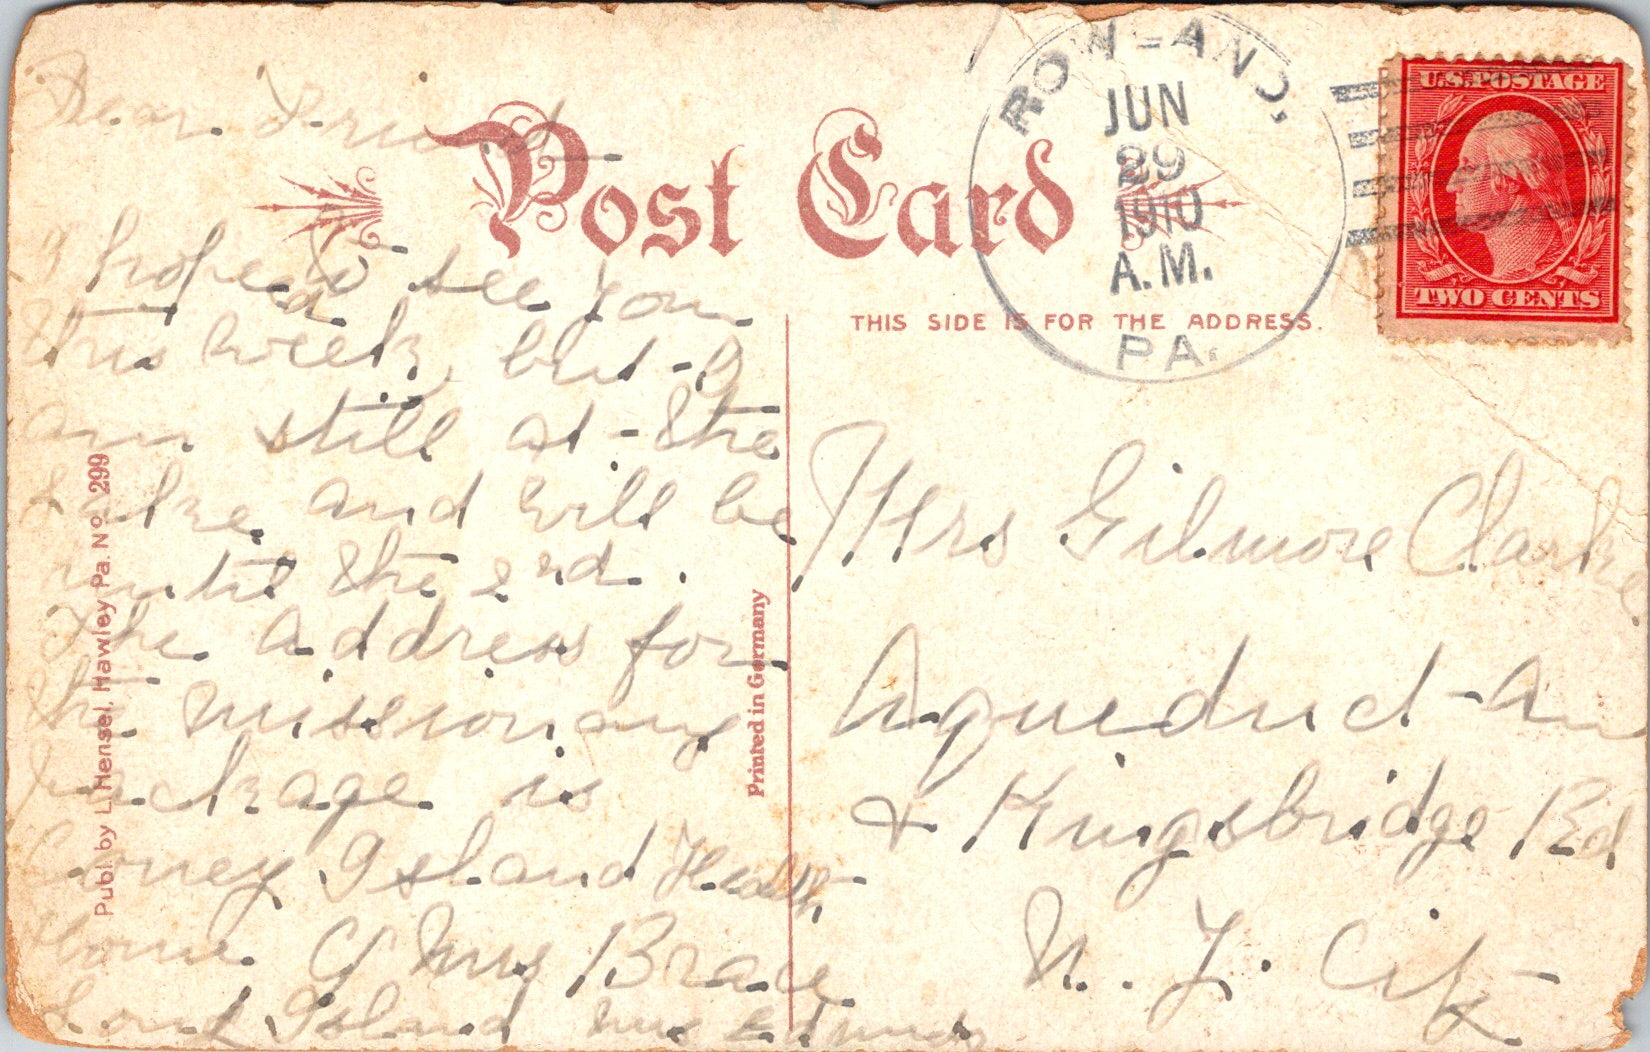 Post Card
THIS SIDE IS FOR THE ADDRESS.
ROWLAND,
JUN
29
1910
A.M.
PA.
U.S. POSTAGE
TWO CENTS
Dear Friend
I hoped to see you
this week, but I
am still at the
Lake and will be
until the 2nd.
The address for
the missionary
package is
Coney Island Health
Home C/ Mrs Brace
Island Mrs
Mrs Gilmore Clarke
Aqueduct Av
& Kingsbridge Rd
N. Y. City
Publ. by L. Hensel, Hawley Pa. No. 299
Printed in Germany